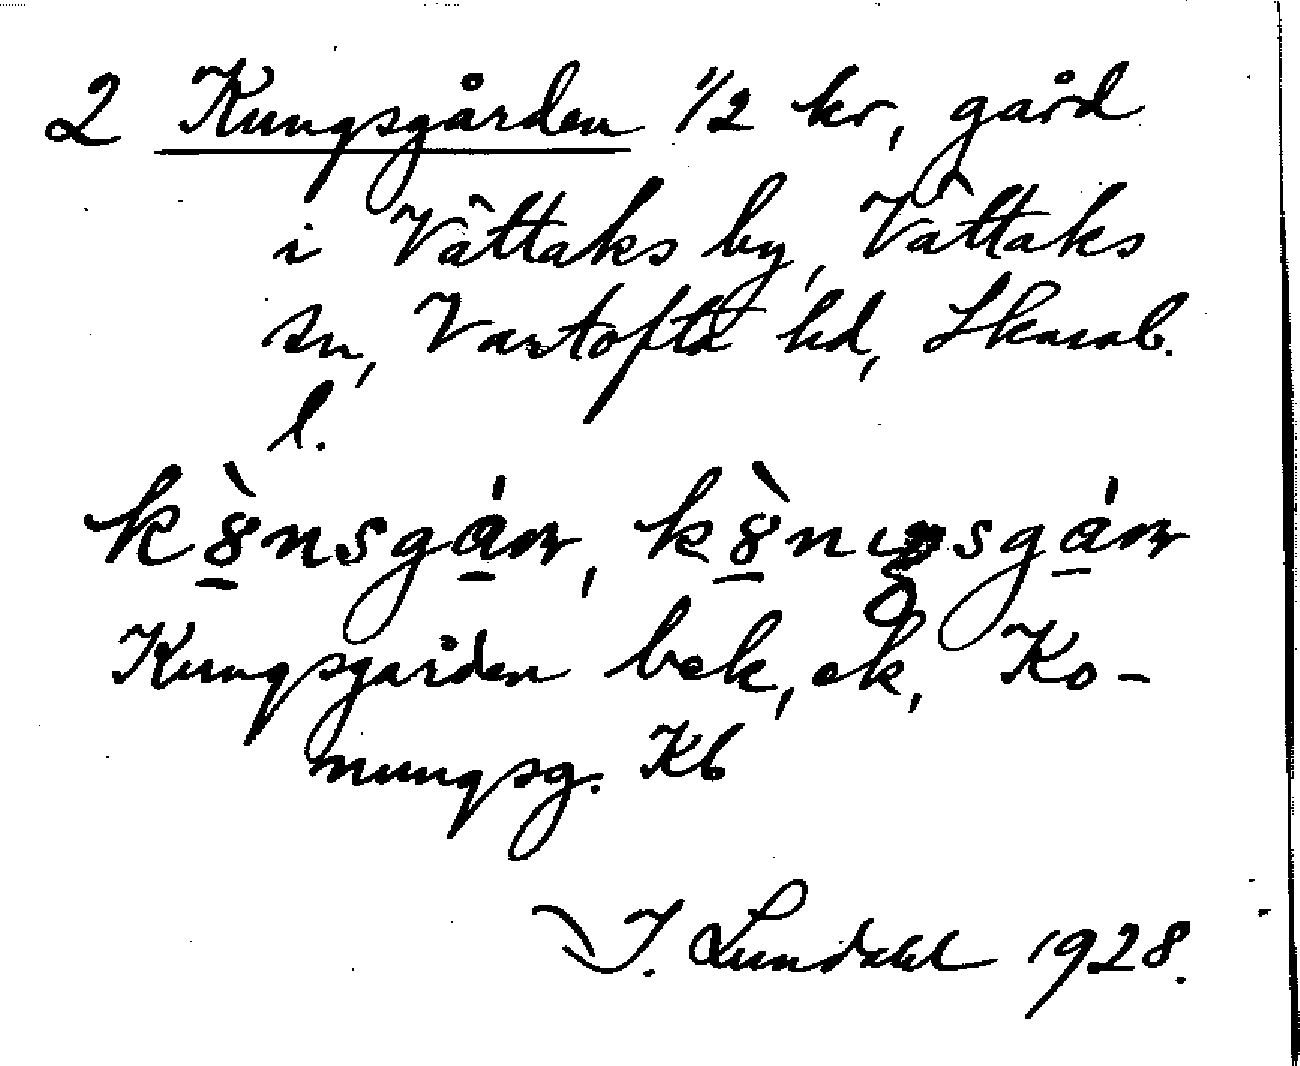 2 Kungsgården 1/2 kr, gård
i Vättaks by, Vättaks
sn, Vartofta hd, Skarab.
l.
Kungsgården bek, ek, Ko-
nungsg. Kb
I. Lundahl 1928.